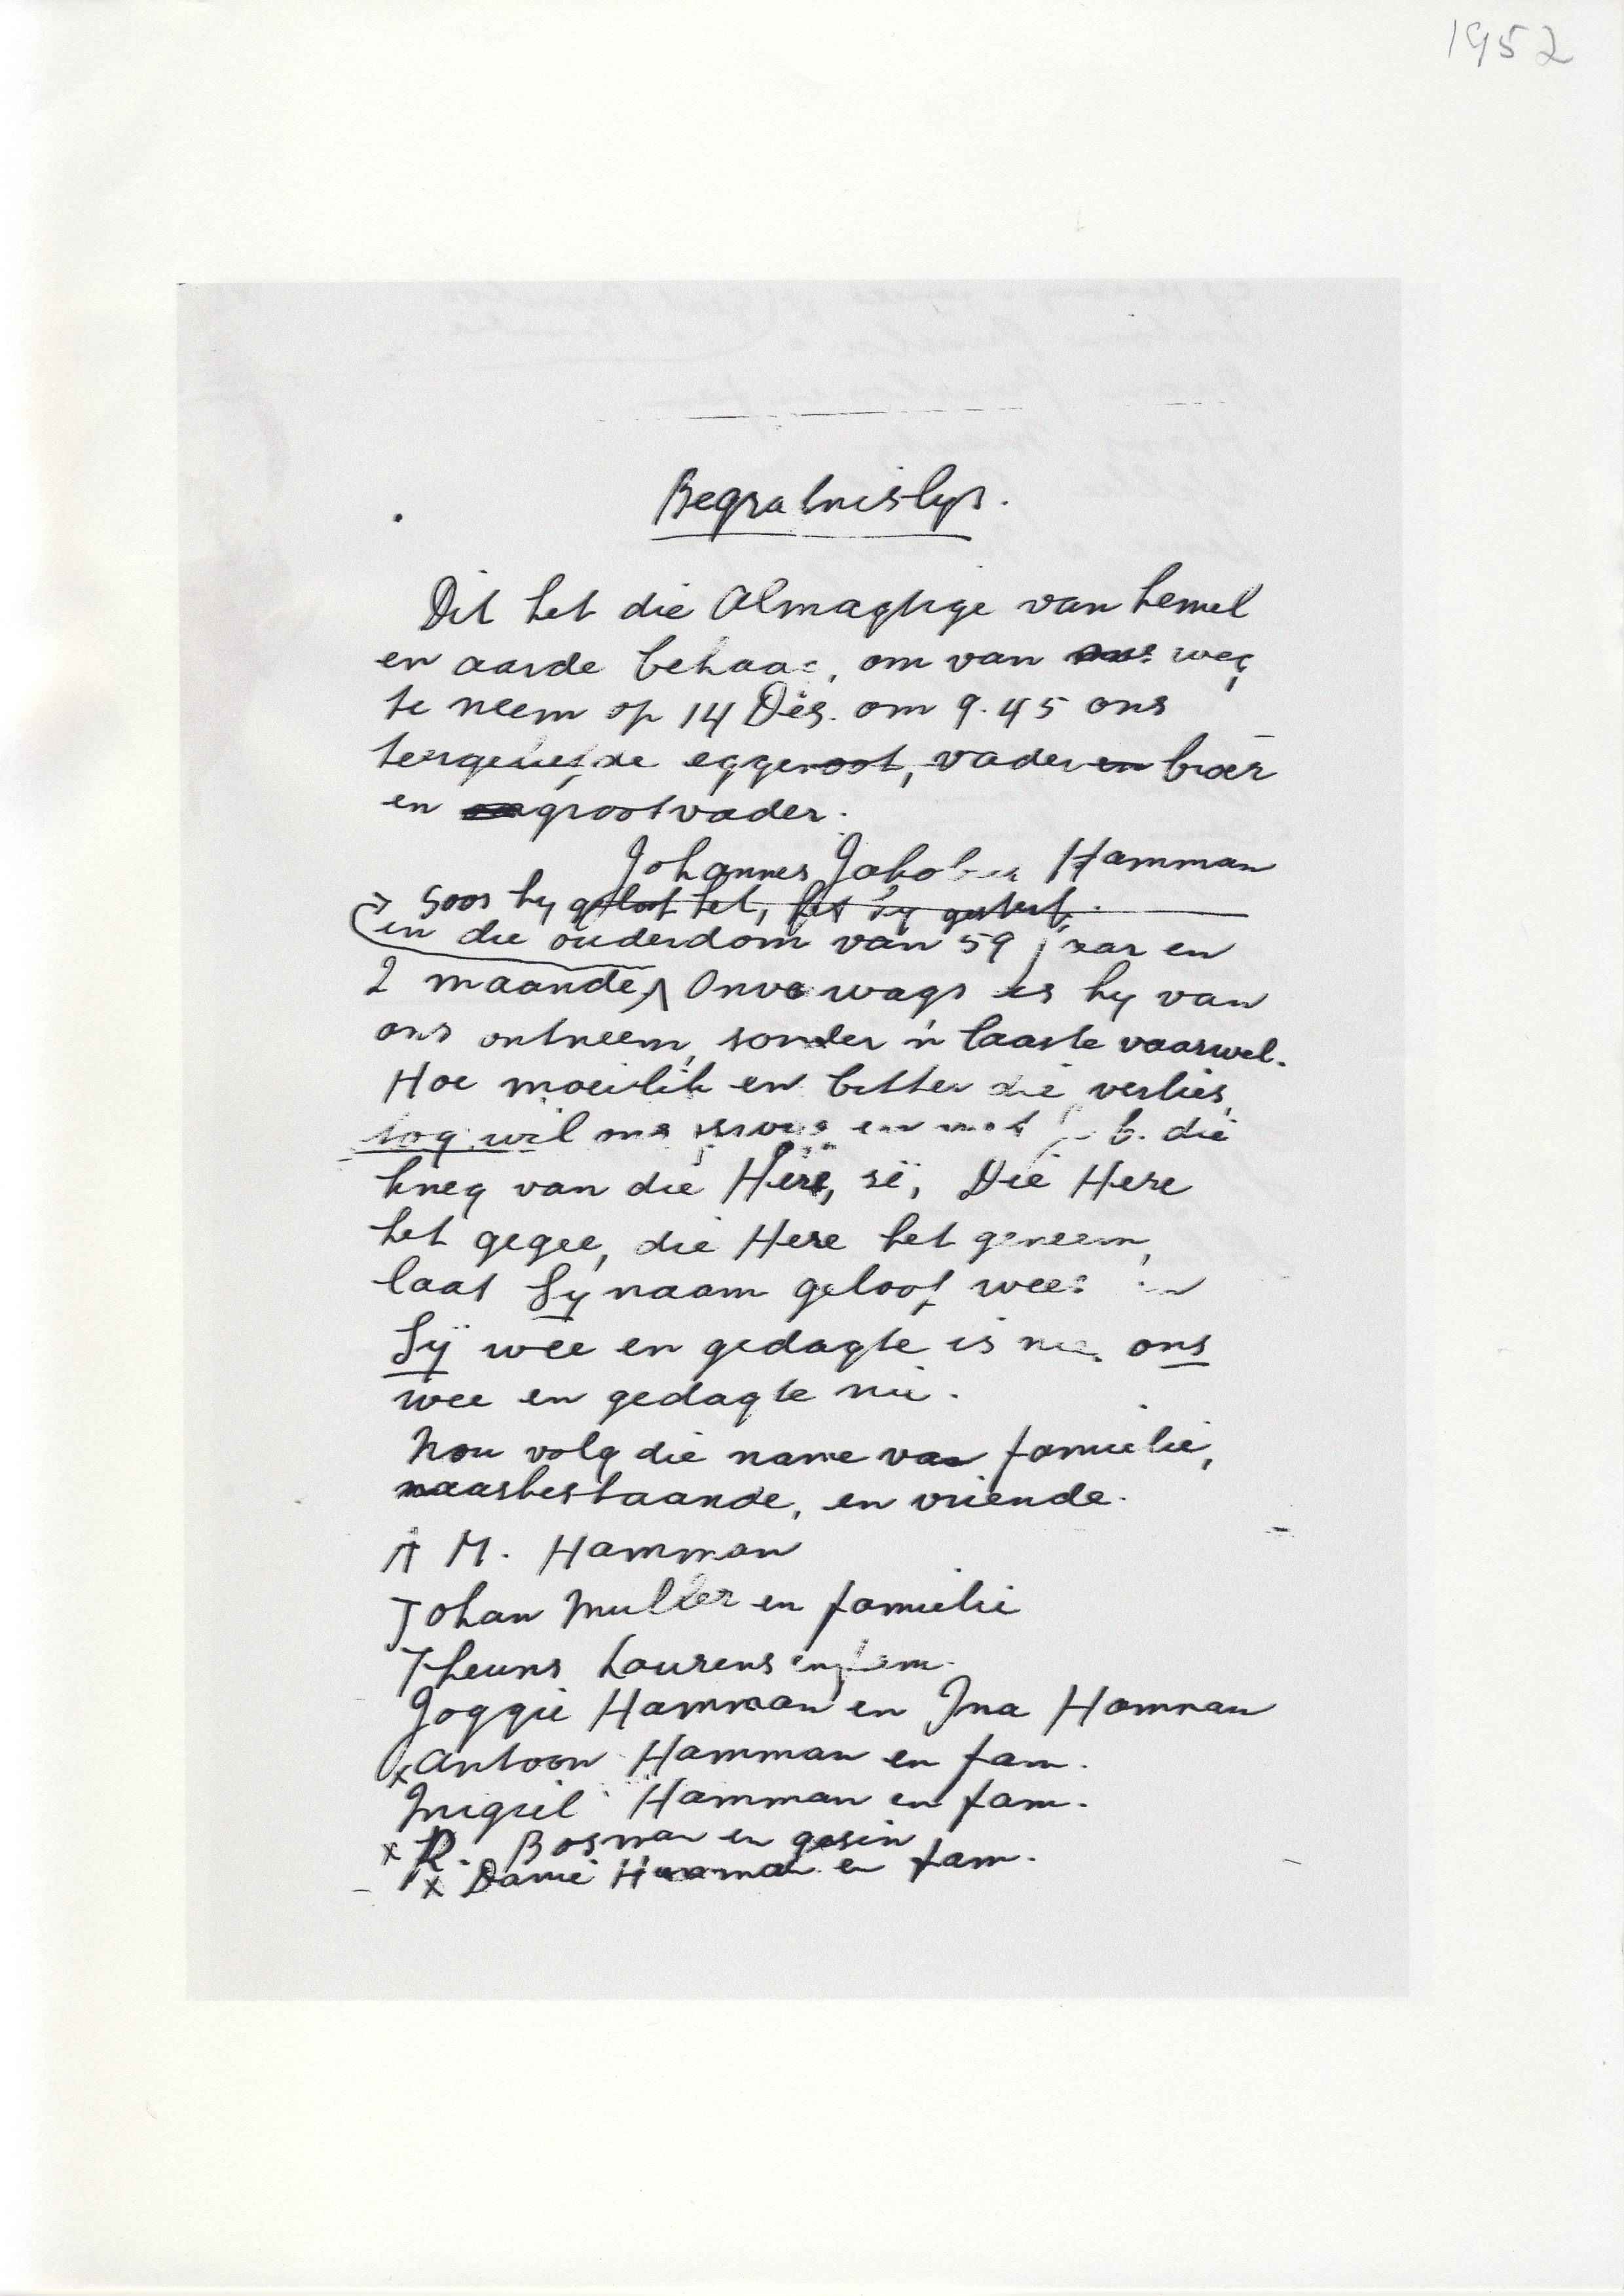 1952
Begrafnislys.
Dit het die Almagtige van hemel
en aarde behaag, om van ons weg
te neem op 14 Des. om 9.45 ons
teergeliefde eggenoot, vader en broer
en grootvader.
Johannes Jakobus Hamman
Soos hy geleef het, het hy gesterf.
in die ouderdom van 59 jaar en
2 maande, Onverwags is hy van
ons ontneem, sonder 'n laaste vaarwel.
Hoe moeilik en bitter die verlies,
tog wil ons en met die
kneg van die Here, sê, Die Here
het gegee, die Here het geneem,
laat Sy naam geloof wees
Sy weë en gedagte is nie ons
weë en gedagte nie.
Nou volg die name van familie,
naasbestaande, en vriende.
A M. Hamman
Johan Muller en familie
Theuns Lourens en fam.
Joggie Hamman en Ina Hamman
x Antoon Hamman en fam.
Migiel Hamman en fam.
x R. Bosman en gesin
x Danie Hamman en fam.